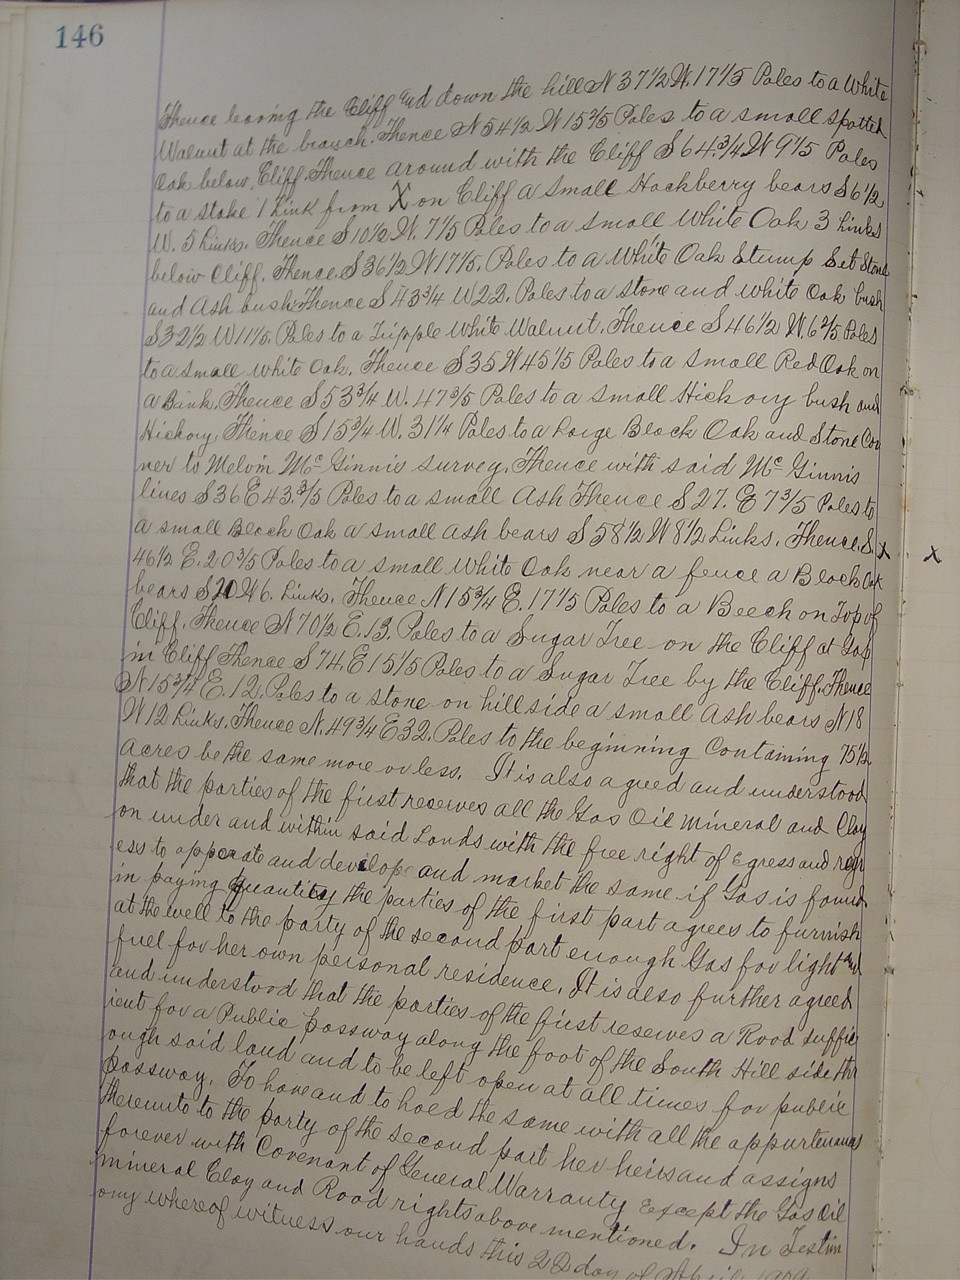 146
Thence leaving the Cliff and down the hill N 37 1/2 W. 17 1/5 Poles to a White
Walnut at the branch. Thence N 54 1/2 W 15 2/5 Poles to a small spotted
Oak below Cliff. Thence around with the Cliff S 64 3/4 W 9 1/5 Poles
to a stake 1 Link from X on Cliff a small Hackberry bears S 6 1/2
W. 5 Links. Thence S 10 1/2 W. 7 1/5 Poles to a small White Oak 3 Links
below Cliff. Thence S 36 1/2 W 17 1/5. Poles to a White Oak Stump Set Stone
and Ash bush Thence S 43 3/4 W 22. Poles to a stone and White Oak bush
S 32 1/2 W 11 1/5. Poles to a Tripple White Walnut. Thence S 46 1/2 W. 6 2/5 Poles
to a small White Oak. Thence S 35 W 45 1/5 Poles to a small Red Oak on
a Bank. Thence S 53 3/4 W. 47 3/5 Poles to a small Hickory bush and
Hickory Thence S 15 3/4 W. 31 1/4 Poles to a Large Black Oak and Stone Cor
ner to Melvin McGinnis survey. Thence with said McGinnis
lines S 36 E 43. 3/5 Poles to a small Ash Thence S 27. E 7 3/5 Poles to
a small Black Oak a small Ash bears S 58 1/2 W 8 1/2 Links. Thence S. X X
46 1/2 E. 20 3/5 Poles to a small White Oak near a fence a Black Oak
bears S 20 W 6. Links. Thence N 15 3/4 E. 17 1/5 Poles to a Beech on Top of
Cliff. Thence N 70 1/2 E. 13. Poles to a Sugar Tree on the Cliff at Gap
in Cliff Thence S 74 E 15 1/5 Poles to a Sugar Tree by the Cliff. Thence
N 15 3/4 E. 12. Poles to a stone on hillside a small Ash bears N 18
W 12 Links. Thence N. 49 3/4 E 32. Poles to the beginning Containing 75 1/2
Acres be the same more or less. It is also agreed and understood
that the parties of the first reserves all the Gas Oil Mineral and Clay
on under and within said Lands with the free right of Egress and regr
ess to apperate and develope and market the same if Gas is found
in paying quantity the parties of the first part agrees to furnish
at the well to the party of the second part enough Gas for light and
fuel for her own personal residence. It is also further agreed
and understood that the parties of the first reserves a Road suffic
ient for a Public passway along the foot of the South Hill side thr
ough said land and to be left open at all times for public
passway. To have and to hold the same with all the appurtenances
thereunto to the party of the second part her heirs and assigns
forever with Covenant of General Warranty Except the Gas Oil
mineral Clay and Road rights above mentioned. In Testim
ony whereof witness our hands this 22 day of April 1909